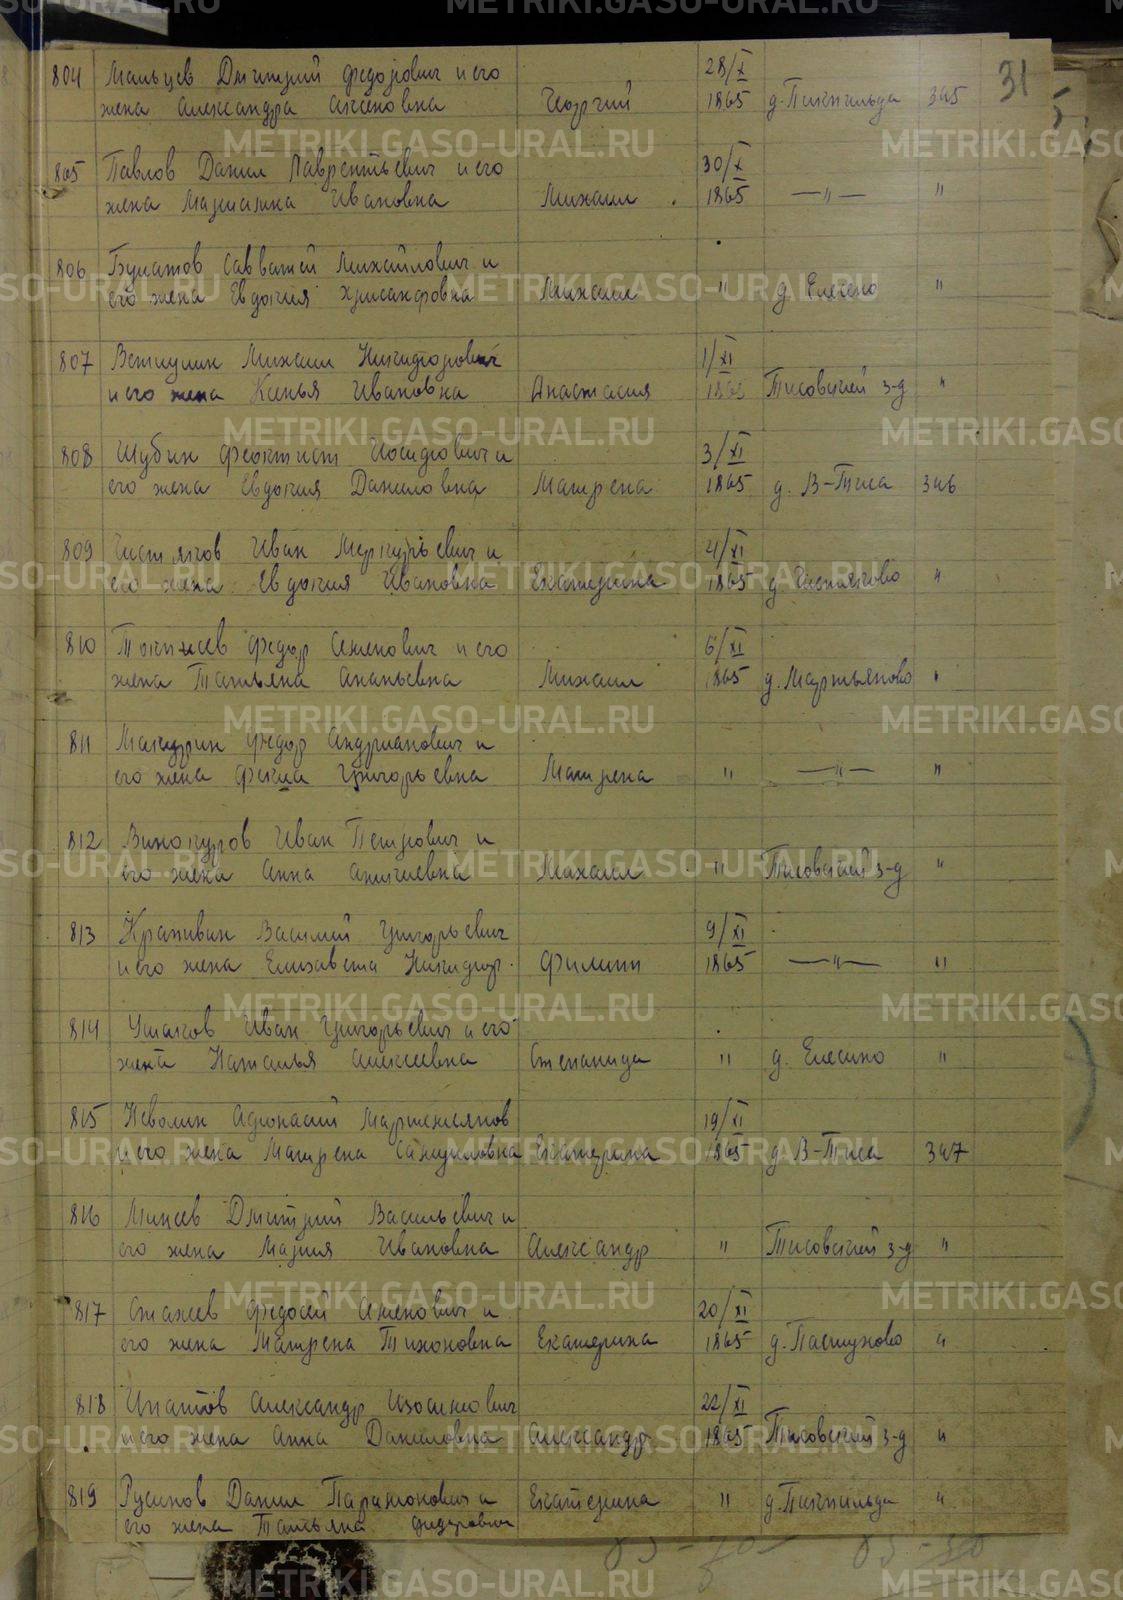 31
804 Мальцев Дмитрий Федорович и его 28/X
жена Александра Аксеновна Георгий 1865 д. Пикпильда 345
805 Павлов Данил Лаврентьевич и его 30/X
жена Марианна Ивановна Михаил 1865 —"— "
806 Булатов Савватей Михайлович и
его жена Евдокия Хрисанфовна Михаил " д. Елесино "
807 Ветчулин Михаил Никифорович 1/XI
и его жена Ксенья Ивановна Анастасия 1865 Тисовский з-д "
808 Шубин Феоктист Иосифович и 3/XI
его жена Евдокия Даниловна Матрена 1865 д. В-Тиса 346
809 Чистяков Иван Меркурьевич и 4/XI
его жена Евдокия Ивановна Екатерина 1865 д. Чистяково "
810 Федор Семенович и его 6/XI
жена Татьяна Ананьевна Михаил 1865 д. Мартьяново "
811 Федор Андрианович и
его жена Фекла Григорьевна Матрена " —"— "
812 Винокуров Иван Петрович и
его жена Анна Михаил " Тисовский з-д "
813 Крапивин Василий Григорьевич 9/XI
и его жена Елизавета Никифор. Филипп 1865 —"— "
814 Ушаков Иван Григорьевич и его
жена Наталья Алексеевна Степанида " д. Елесино "
815 Неволин Афонасий Мартемьянов 19/XI
и его жена Матрена Самуиловна Екатерина 1865 д. В-Тиса 347
816 Минеев Дмитрий Васильевич и
его жена Мария Ивановна Александр " Тисовский з-д "
817 Стахеев Федосей Семенович и 20/XI
его жена Матрена Тихоновна Екатерина 1865 д. Пастухово "
818 Ипатов Александр Изосимович 22/XI
и его жена Анна Даниловна Александр 1865 Тисовский з-д "
819 Русинов Данил Парамонович и Екатерина " д. Пикпильда "
его жена Татьяна Федоровна